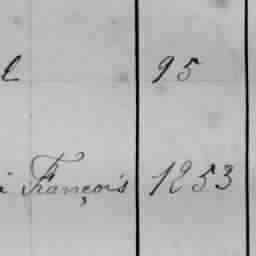 l 95
i François 1253